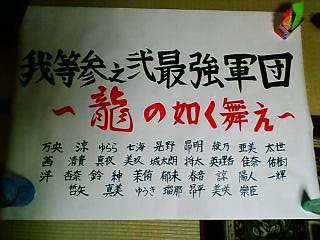 我等参之弐最強軍団
～龍の如く舞え～
万央 涼 ゆらら 七海 晃野 昂明 綾乃 亜美 太世
茜 清貴 真衣 美玖 城太朗 将太 英理香 佳奈 佑樹
洋 杏奈 鈴 紳 茉侑 郁未 春音 諒 陽人 一輝
哲矢 真美 ゆうき 瑠那 昂平 美咲 崇臣